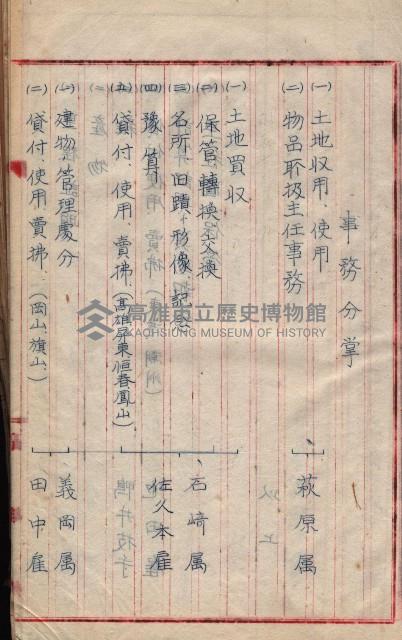 事務分掌
(一) 土地収用、使用
(二) 物品取扱主任事務
萩原属
(一) 土地買収
(二) 保管轉換、交換
(三) 名所旧蹟、形像、記念
(四) 豫算
(五) 貸付、使用、賣拂、(高雄屏東恒春鳳山)
石崎属
佐久本雇
(一) 建物管理處分
(二) 貸付、使用賣拂、(岡山、旗山、)
義岡属
田中雇
高雄市立歷史博物館
KAOHSIUNG MUSEUM OF HISTORY